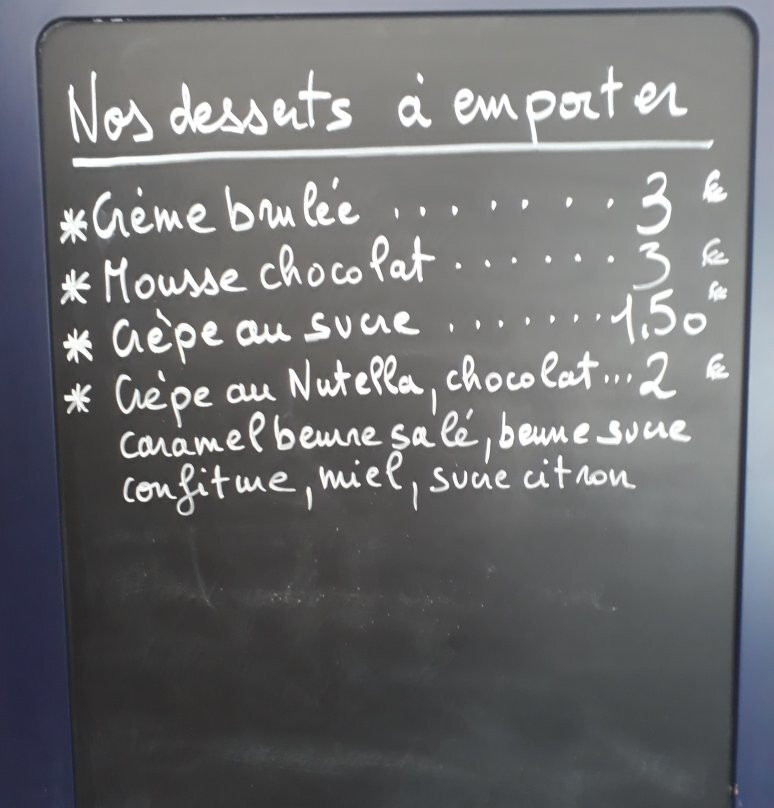 Nos desserts à emporter
* Crème brulée ........ 3 €
* Mousse chocolat ...... 3 €
* Crèpe au sucre ....... 1,50 €
* Crèpe au Nutella, chocolat... 2 €
caramel beurre salé, beurre sucre
confiture, miel, sucre citron